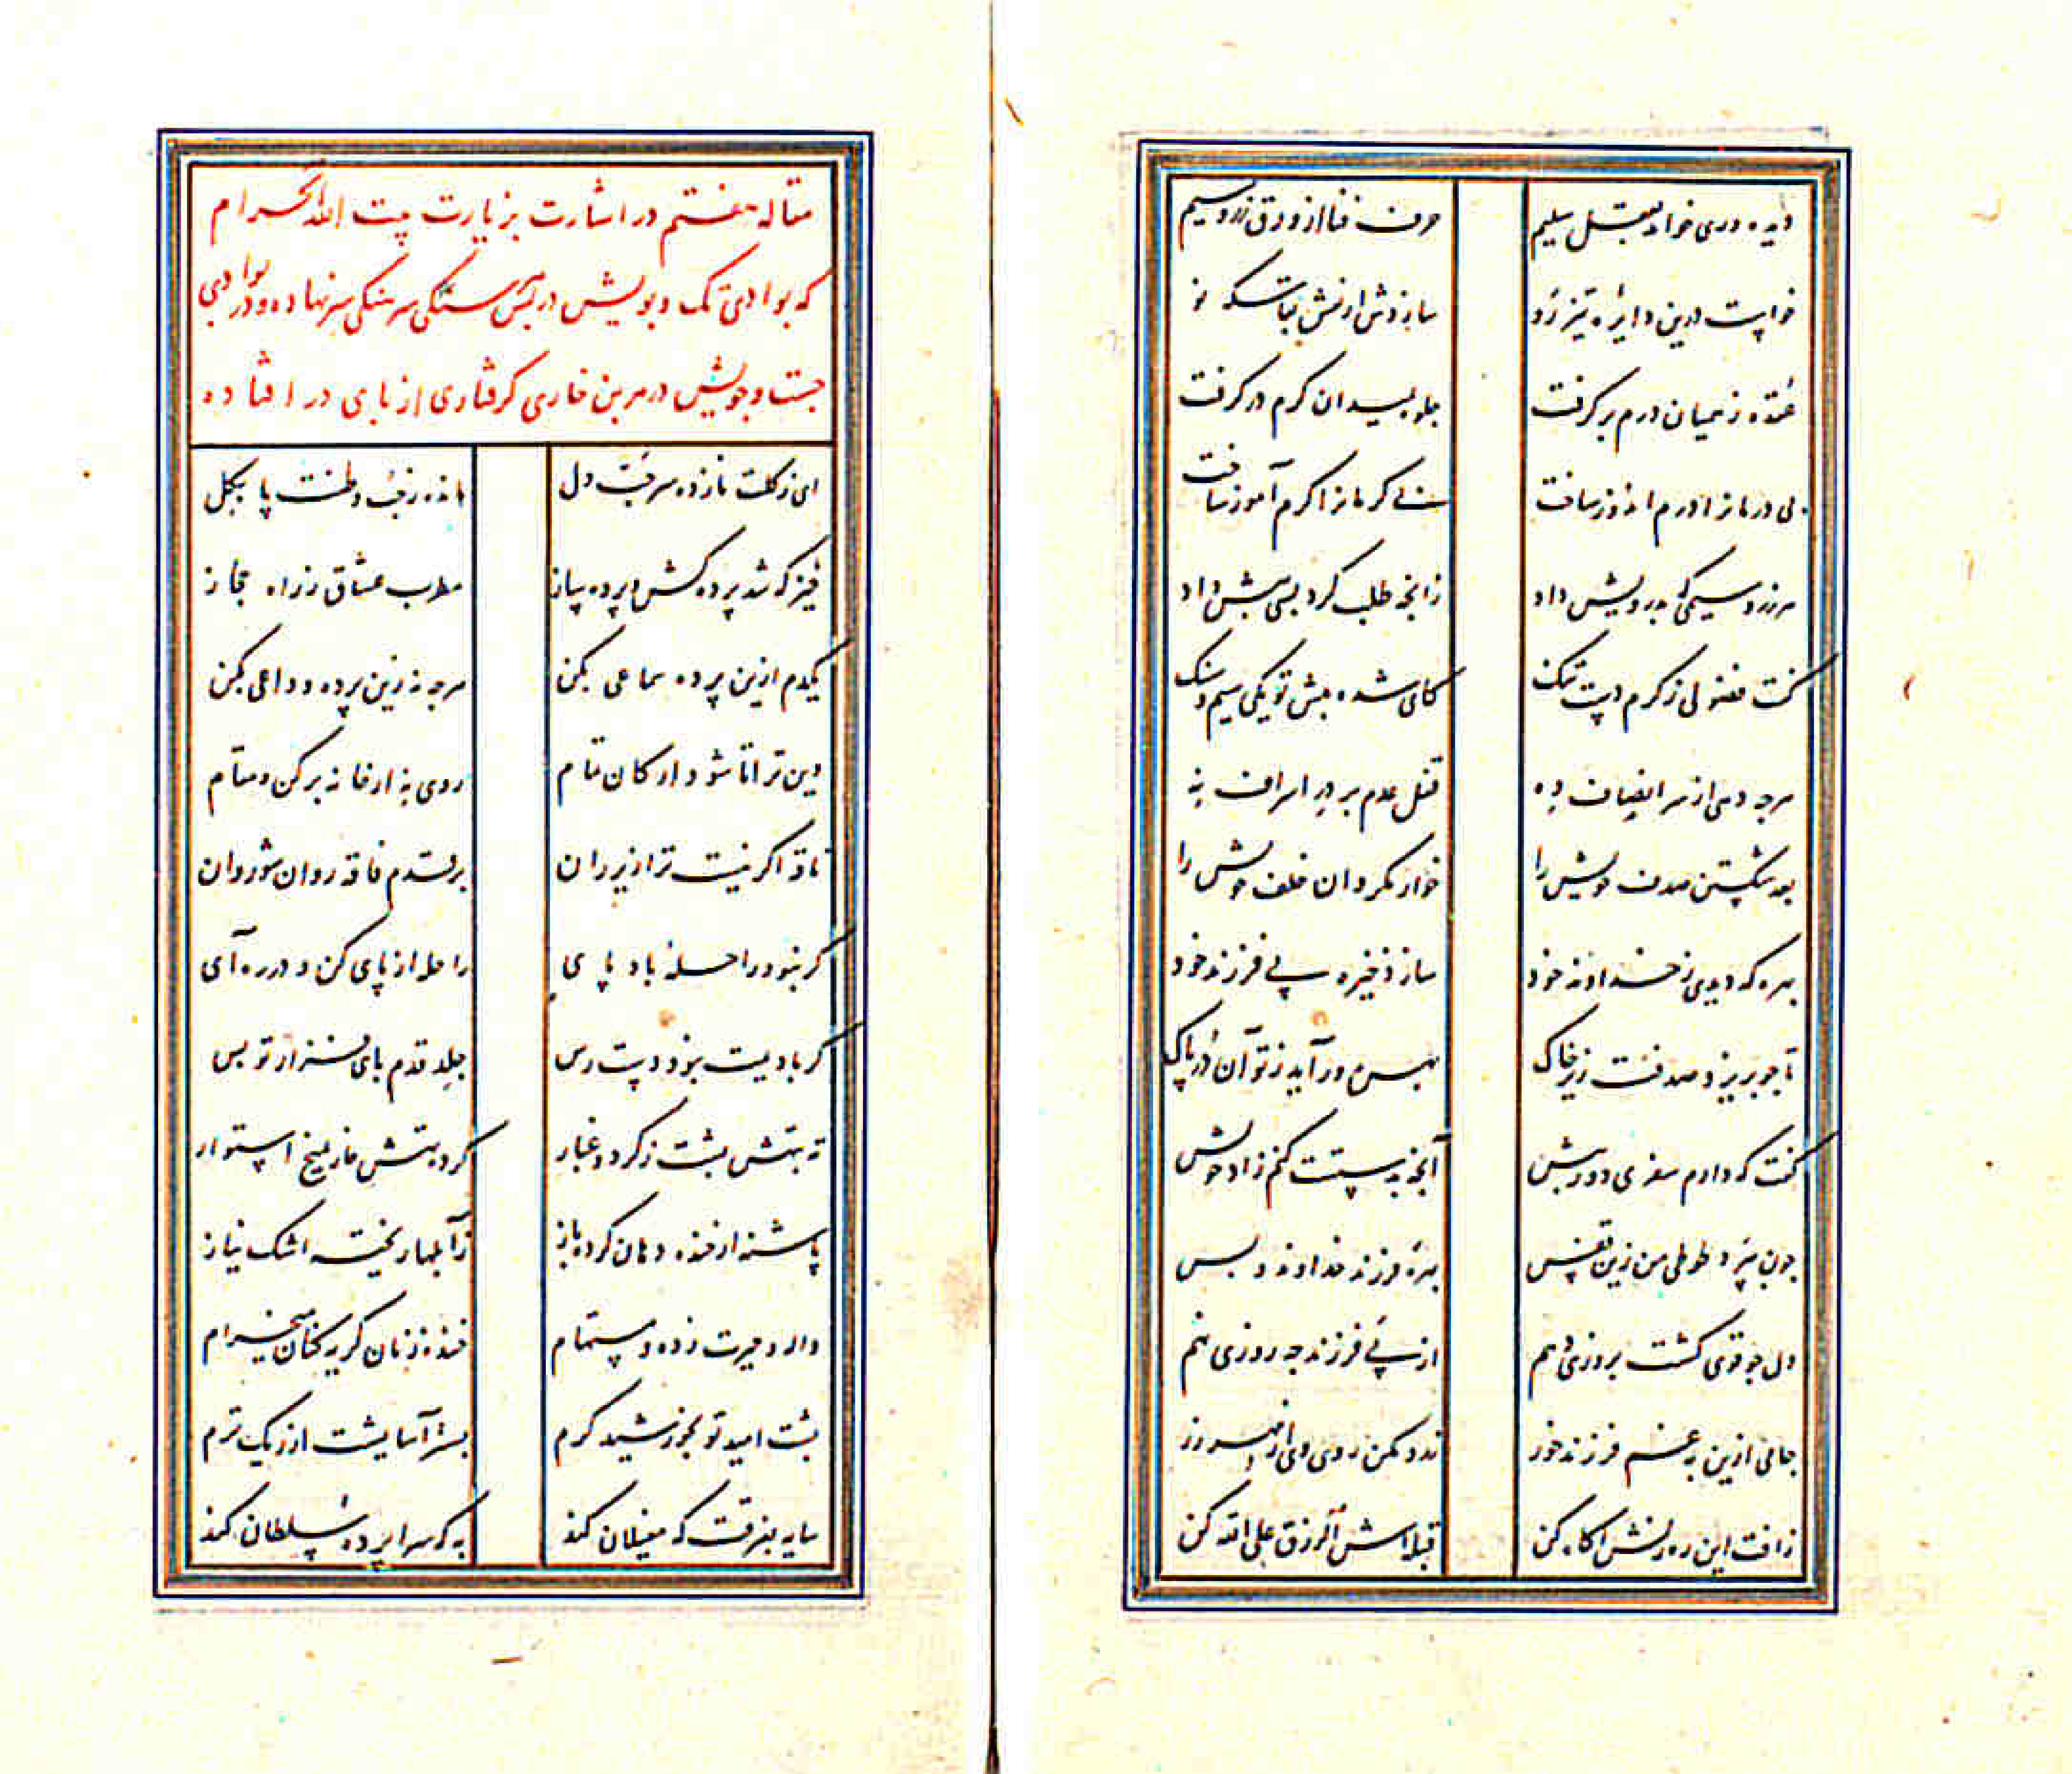 دیده وری خواند بعقل سلیم حرف فنا از ورق زر و سیم
خواست درین دایره تیز رو سازدش از نقش بقا سکه نو
عقده ز همیان درم برکرفت جلوه بمیدان کرم درکرفت
بی درمانرا درم اندوز ساخت بی کرمانرا کرم آموز ساخت
هر زر و سیمی که بدرویش داد زانچه طلب کرد بسی بیش داد
کفت فضولی ز کرم دست تنک کای شده پیش تو یکی سیم و سنک
هرچه دهی از سر انصاف ده قفل عدم بر در اسراف نه
بعد شکستن صدف خویش را خوار مکردان خلف خویش را
بهره که دیدی ز خداوند خود ساز ذخیره پی فرزند خود
تا چو بریزد صدفت زیر خاک بهره ور آید ز تو آن در پاک
کفت که دارم سفری دور پیش آنچه بدستست کنم زاد خویش
چون بپرد طوطی من زین قفس بهره فرزند خداوند و بس
دل چو قوی کشت بروزی دهم از پی فرزند چه روزی نهم
جامی ازین به غم فرزند خور مکن روی وی از بهر زر
زافت این ره دلش آکاه کن قبله اش الرزق علی الله کن
مقاله هفتم در اشارت بزیارت بیت الله الحرام
که بوادی تک و پویش در پس سنکی سرهنکی سر نهاده و در بوادی
جست و جویش در هر بن خاری کرفتاری از پای در افتاده
ای ز کلت تازده سر حب دل مانده ز حب وطنت پا بکل
خیز که شد پرده کش و پرده ساز مطرب عشاق ز راه حجاز
یکدم ازین پرده سماعی بکن هرچه نه زین پرده وداعی بکن
دین ترا تا شود ارکان تمام روی نه از خانه برکن و مقام
ناقه اکر نیست ترا زیر ران بر قدم فاقه روان شو روان
کر نبود راحله باد پای راحله از پای کن و در ره آی
کر بادیمت نبود دست رس جلد قدم پای فزار تو بس
ته بتهش بست ز کرد و غبار کرد بتهش خار بمیخ استوار
پاشنه از خنده دهان کرده باز زآبلها ریخته اشک نیاز
واله و حیرت زده و مستهام خنده زنان کریه کنان میخرام
پشت امید تو بخورشید کرم بستر آسایشت از ریک نرم
سایه بفرقت که مغیلان کند به که سراپرده سلطان کند